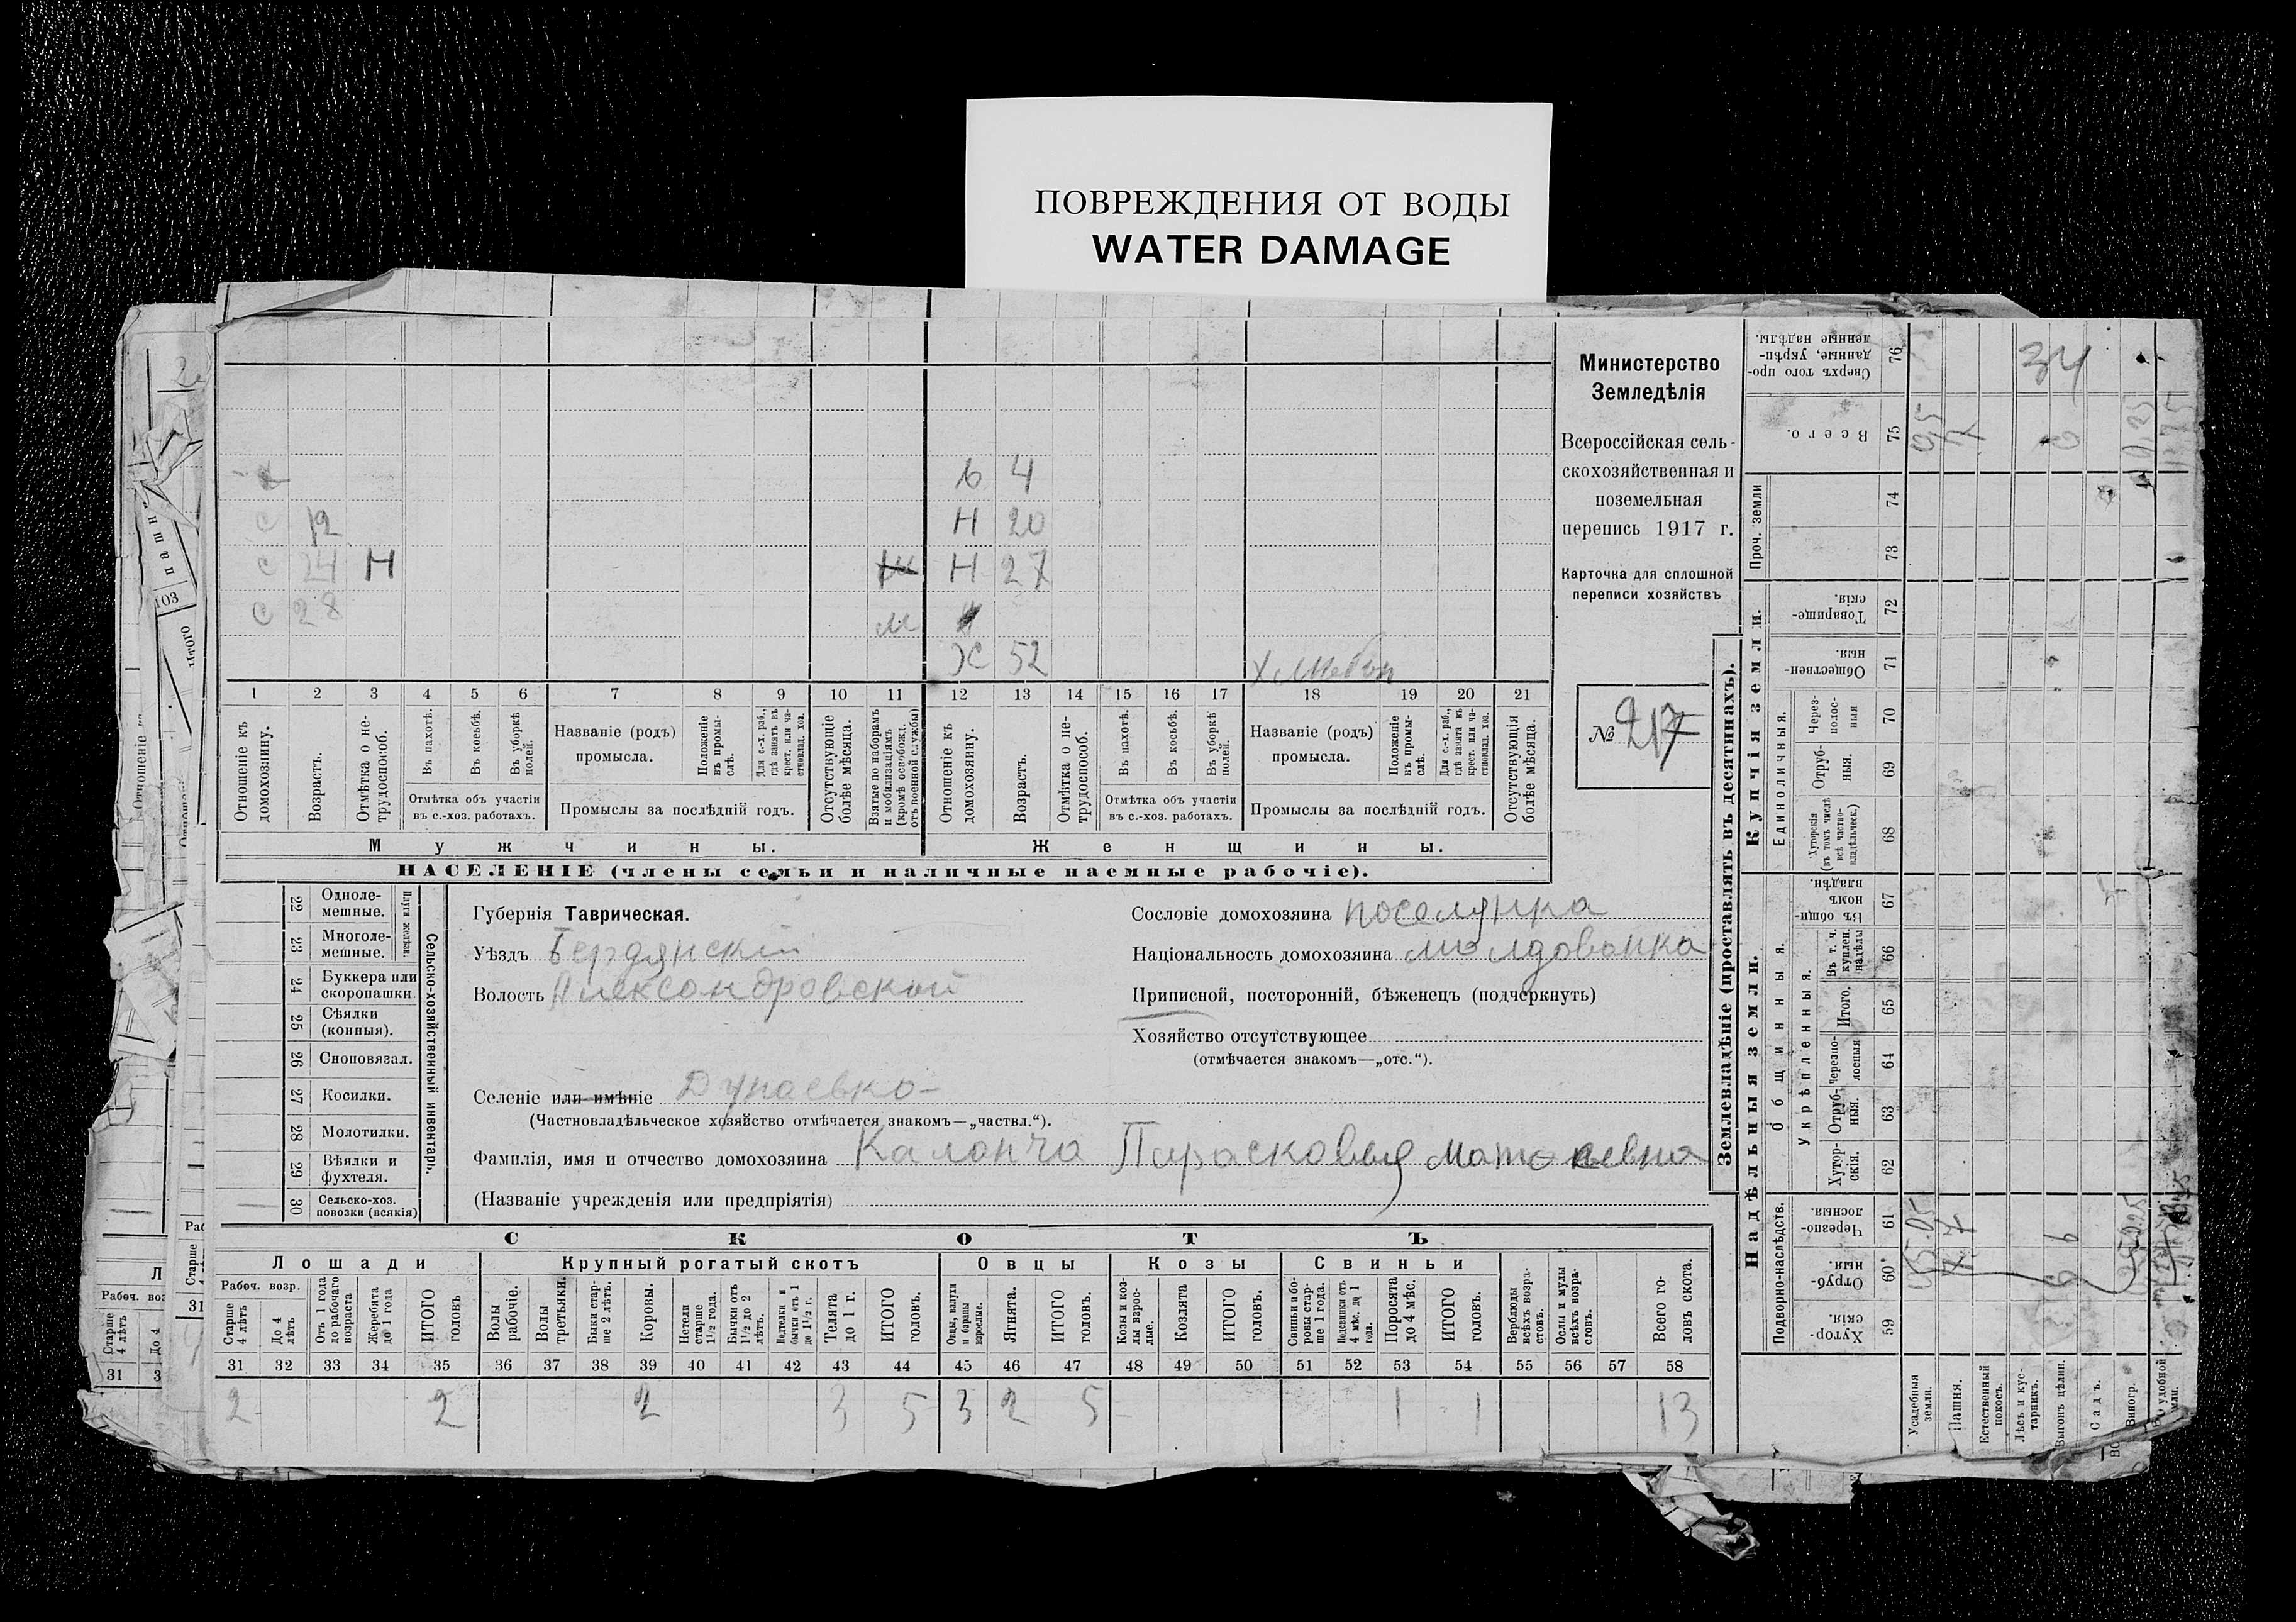 ПОВРЕЖДЕНИЯ ОТ ВОДЫ
WATER DAMAGE
Министерство
Земледѣлія
Всероссійская сель-
скохозяйственная и
поземельная
перепись 1917 г.
Карточка для сплошной
переписи хозяйствъ
№ 217
4
с 12 Н 20
с 24 Н Н 27
с 28 м
Ж 52
1 2 3 4 5 6 7 8 9 10 11 12 13 14 15 16 17 18 19 20 21
Отношеніе къ домохозяину.
Возрастъ.
Отмѣтка о не-трудоспособ.
Въ пахотѣ.
Въ косьбѣ.
Въ уборкѣ полей.
Отмѣтка объ участіи
въ с.-хоз. работахъ.
Названіе (родъ)
промысла.
Положеніе въ промы-слѣ.
Для с.-х. раб., гдѣ занятъ въ крест. или ча-стновлад. хоз.
Промыслы за послѣдній годъ.
Отсутствующіе болѣе мѣсяца.
Взятые по наборамъ и мобилизаціямъ (кромѣ освобожд. отъ военной службы)
Отношеніе къ домохозяину.
Возрастъ.
Отмѣтка о не-трудоспособ.
Въ пахотѣ.
Въ косьбѣ.
Въ уборкѣ полей.
Отмѣтка объ участіи
въ с.-хоз. работахъ.
Названіе (родъ)
промысла.
Положеніе въ промы-слѣ.
Для с.-х. раб., гдѣ занята въ крест. или ча-стновлад. хоз.
Промыслы за послѣдній годъ.
Отсутствующія болѣе мѣсяца.
Мужчины. Женщины.
НАСЕЛЕНІЕ (члены семьи и наличные наемные рабочіе).
22 Одноле-мешные.
23 Многоле-мешные.
Плуги желѣзн.
24 Буккера или скоропашки.
25 Сѣялки (конныя).
26 Сноповязал.
27 Косилки.
28 Молотилки.
29 Вѣялки и фухтеля.
30 Сельско-хоз. повозки (всякія)
Сельско-хозяйственный инвентарь.
Губернія Таврическая.
Уѣздъ Бердянскій
Волость Александровской
Сословіе домохозяина поселянка
Національность домохозяина молдованка
Приписной, посторонній, бѣженецъ (подчеркнуть)
Хозяйство отсутствующее
(отмѣчается знакомъ—„отс.“).
Селеніе или имѣніе Дунаевка
(Частновладѣльческое хозяйство отмѣчается знакомъ—„частвл.“).
Фамилія, имя и отчество домохозяина Каланча Парасковья
(Названіе учрежденія или предпріятія)
СКОТЪ
Лошади Крупный рогатый скотъ Овцы Козы Свиньи
Рабоч. возр.
Старше 4 лѣтъ
До 4 лѣтъ
Отъ 1 года до рабочаго возраста
Жеребята до 1 года
ИТОГО головъ
Волы рабочіе.
Волы третьяки.
Быки стар-ше 2 лѣтъ.
Коровы.
Нетели старше 1½ года.
Бычки отъ 1½ до 2 лѣтъ.
Подтелки и бычки отъ 1 до 1½ г.
Телята до 1 г.
ИТОГО головъ.
Овцы, валухи и бараны взрослые.
Ягнята.
ИТОГО головъ.
Козы и коз-лы взрос-лые.
Козлята
ИТОГО головъ.
Свиньи и бо-ровы стар-ше 1 года.
Подсвинки отъ 4 мѣс. до 1 года.
Поросята до 4 мѣс.
ИТОГО головъ.
Верблюды всѣхъ возра-стовъ.
Ослы и мулы всѣхъ возра-стовъ.
Всего го-ловъ скота.
31 32 33 34 35 36 37 38 39 40 41 42 43 44 45 46 47 48 49 50 51 52 53 54 55 56 57 58
2 2 2 3 5 3 2 5 1 1 13
Землевладѣніе (проставлять въ десятинахъ).
Надѣльныя земли. Купчія земли.
Подворно-наслѣдств.
Общинныя.
Укрѣпленныя.
Единоличныя.
Проч. земли
59 Хутор-скія.
60 Отруб-ныя.
61 Черезпо-лосныя.
62 Хутор-скія.
63 Отруб-ныя.
64 Черезпо-лосныя
65 Итого.
66 Въ т. ч. куплен. надѣлы
67 Въ общи-номъ владѣн.
68 Хуторскія (въ томъ числѣ всѣ частно-владѣльческ.)
69 Отруб-ныя.
70 Через-полос-ныя
71 Обществен-ныя.
72 Товарище-скія.
73
74
75 Всего.
76 Сверхъ того про-данные, укрѣп-ленные надѣлы.
Усадебныя земли.
Пашня.
Естественный покосъ.
Лѣсъ и кус-тарникъ.
Выгонъ цѣлин.
Садъ.
Виногр.
34